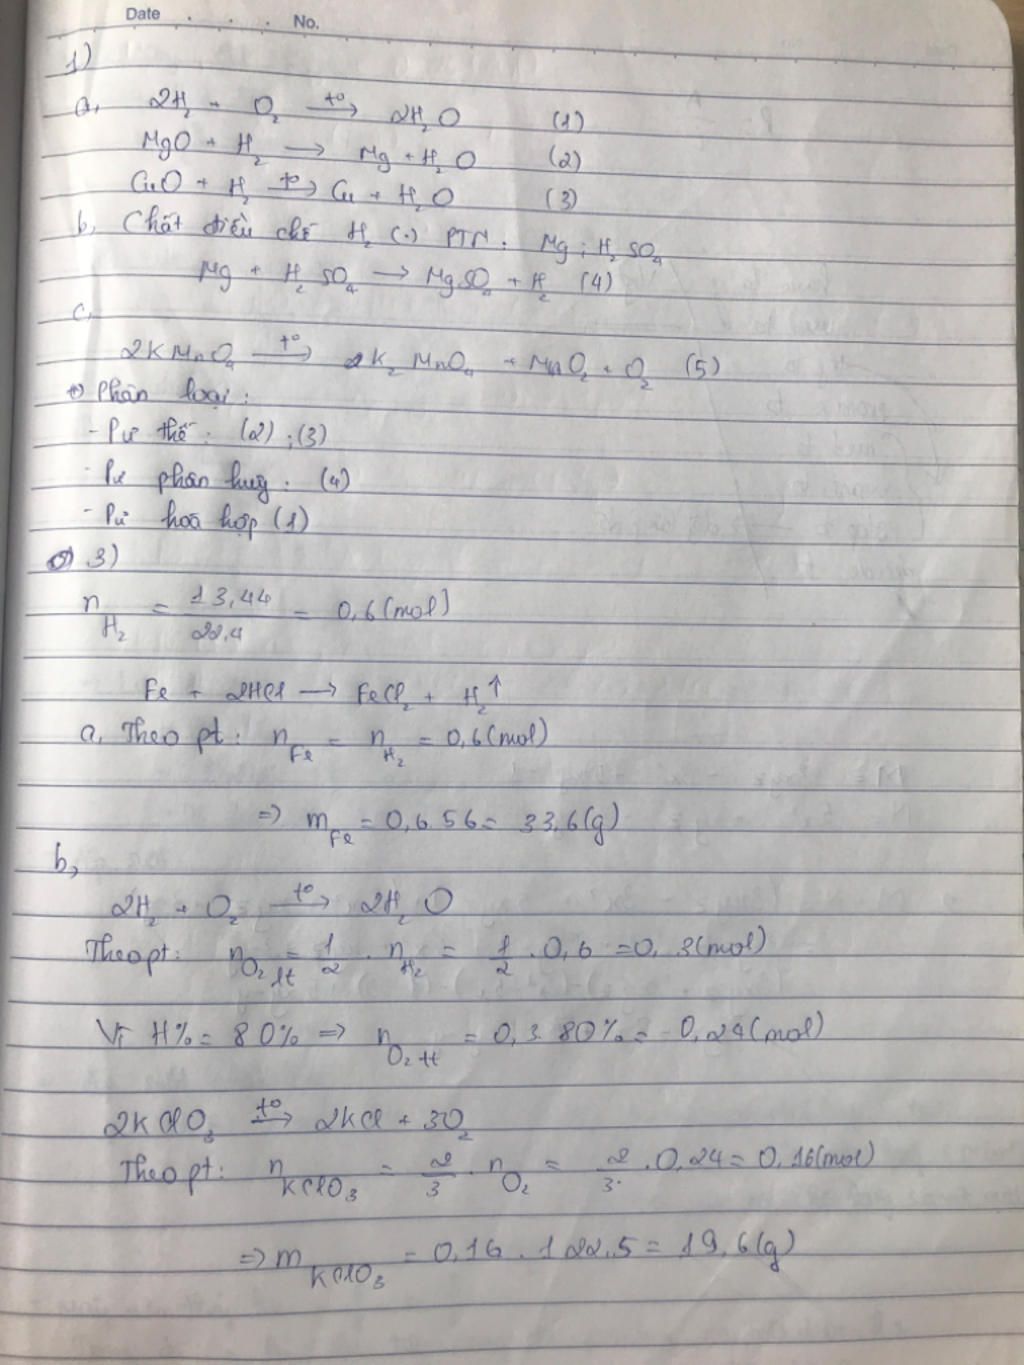 Date . . . No.
1)
a, 2H₂ + O₂ —t°→ 2H₂O (1)
MgO + H₂ → Mg + H₂O (2)
CuO + H₂ —t°→ Cu + H₂O (3)
b, Chất điều chế H₂ (.) PTN : Mg ; H₂SO₄
Mg + H₂SO₄ → MgSO₄ + H₂ (4)
c,
2KMnO₄ —t°→ 2K₂MnO₄ + MnO₂ + O₂ (5)
Phân loại :
- Pư thế : (2) ; (3)
- Pư phân huỷ : (4)
- Pư hoá hợp (1)
3)
n H₂ = 13,44 / 22,4 = 0,6 (mol)
Fe + 2HCl → FeCl₂ + H₂↑
a, Theo pt : n Fe = n H₂ = 0,6 (mol)
=> m Fe = 0,6.56 = 33,6 (g)
b,
2H₂ + O₂ —t°→ 2H₂O
Theo pt : n O₂ lt = 1/2 . n H₂ = 1/2 . 0,6 = 0,3 (mol)
Vì H% = 80% => n O₂ tt = 0,3.80% = 0,24 (mol)
2KClO₃ —t°→ 2KCl + 3O₂
Theo pt : n KClO₃ = 2/3 . n O₂ = 2/3 . 0,24 = 0,16 (mol)
=> m KClO₃ = 0,16 . 122,5 = 19,6 (g)